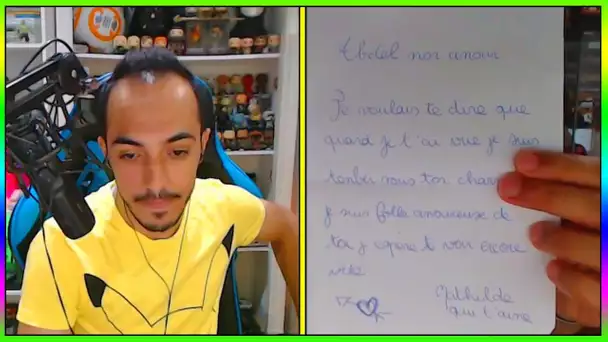 Abdel mon amour
Je voulais te dire que
quand je t'ai vue je suis
tonber sous ton char
je suis folle amoureuse de
toi j'espere te voir encore
vite
Mathilde
qui t'aime